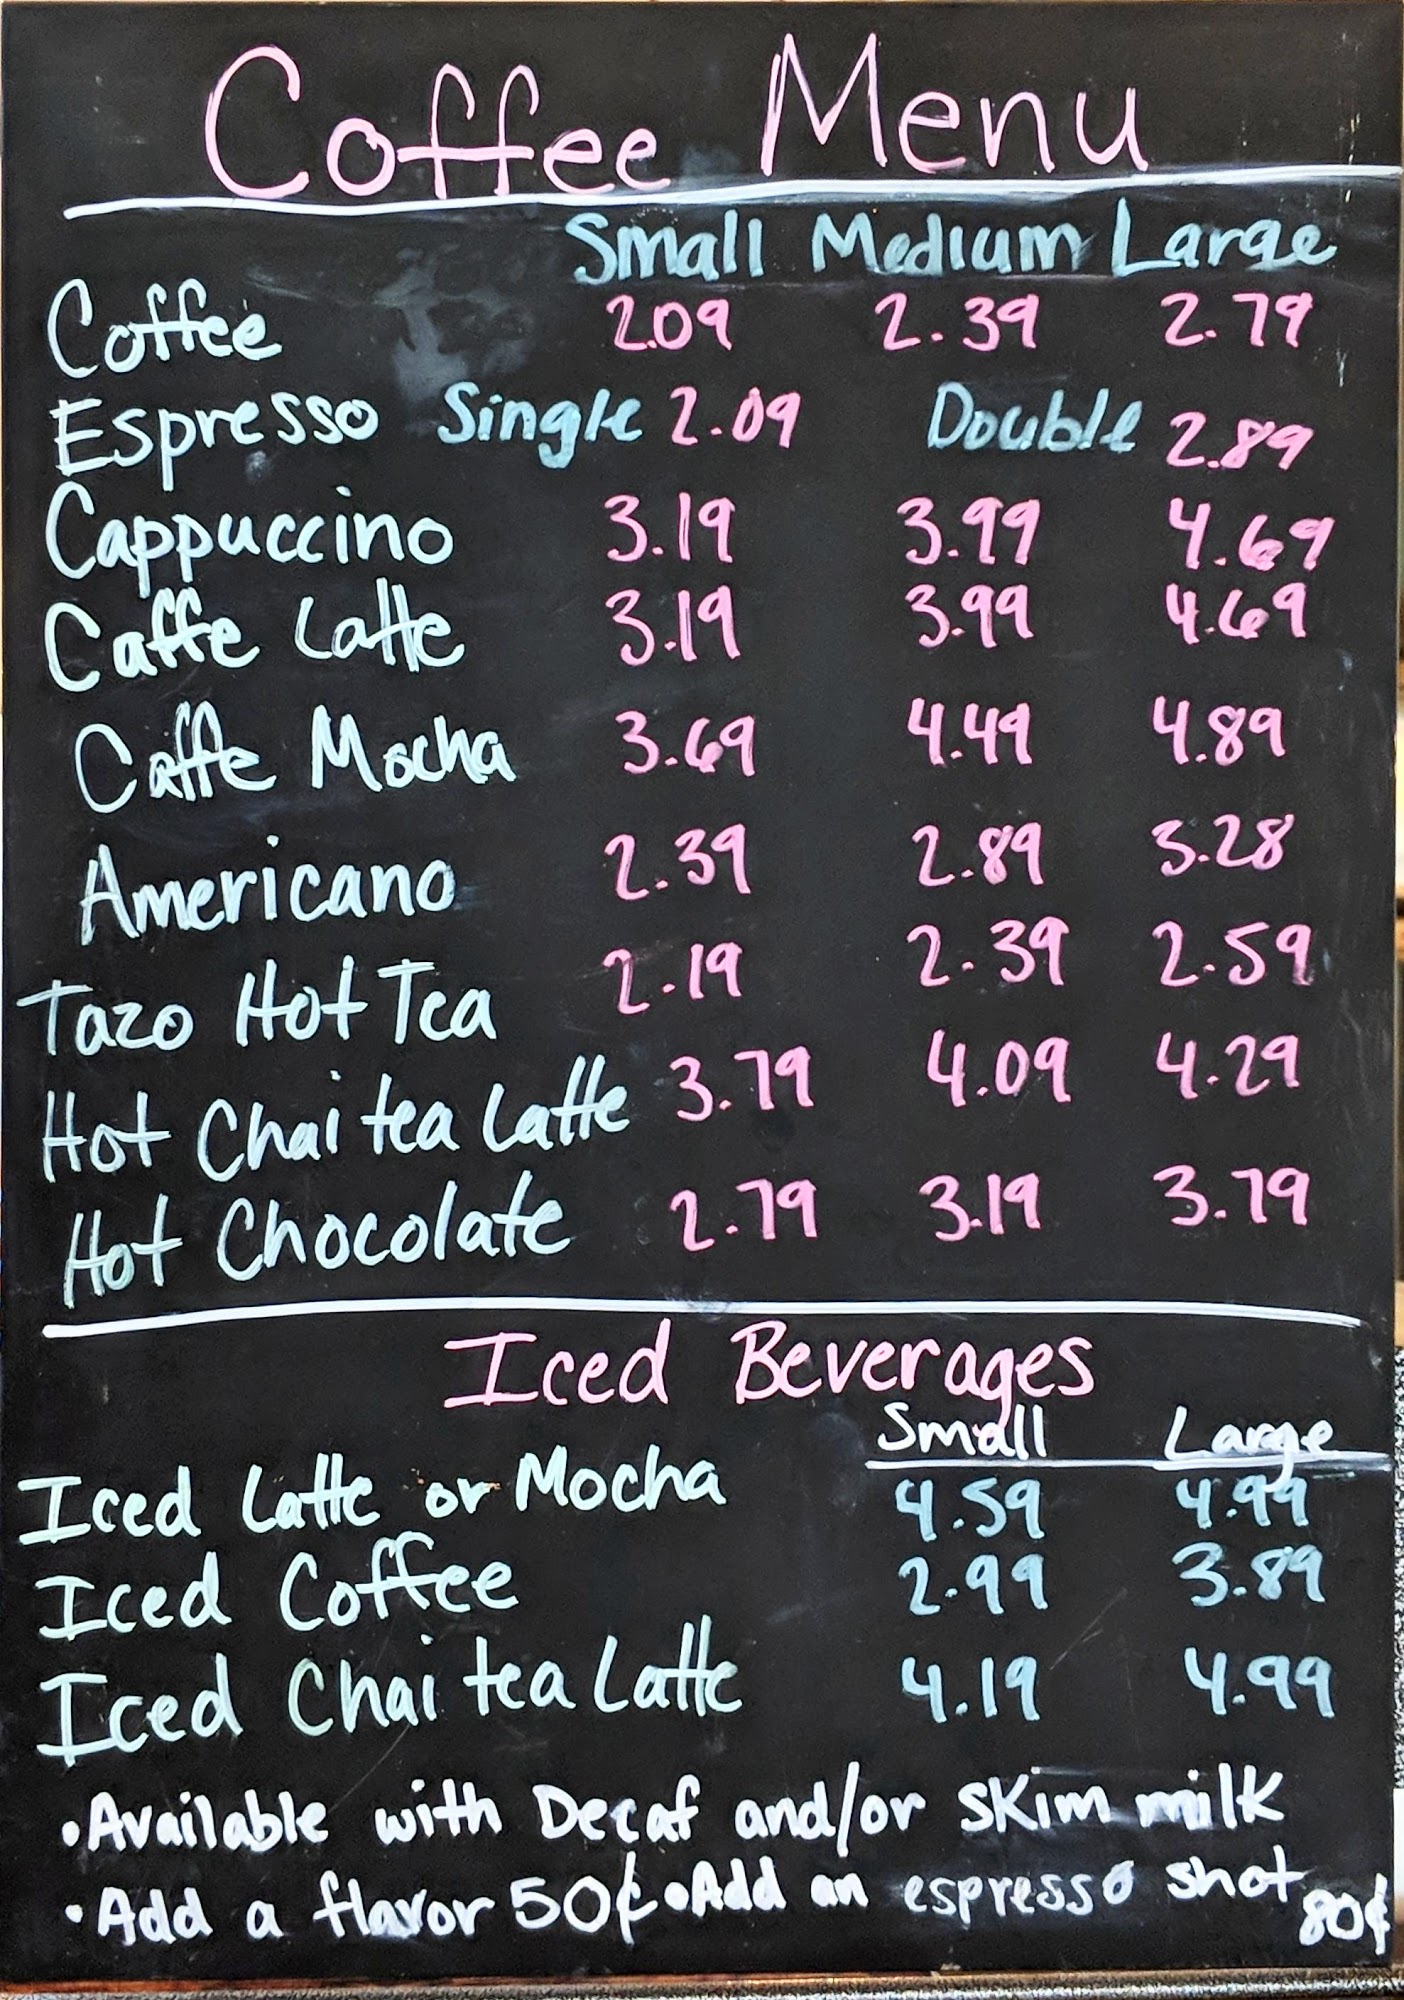 Coffee Menu
Small Medium Large
Coffee 2.09 2.39 2.79
Espresso Single 2.09 Double 2.89
Cappuccino 3.19 3.99 4.69
Caffe Latte 3.19 3.99 4.69
Caffe Mocha 3.69 4.49 4.89
Americano 2.39 2.89 3.28
Tazo Hot Tea 2.19 2.39 2.59
Hot Chai tea Latte 3.79 4.09 4.29
Hot Chocolate 2.79 3.19 3.79
Iced Beverages
Small Large
Iced Latte or Mocha 4.59 4.99
Iced Coffee 2.99 3.89
Iced Chai tea Latte 4.19 4.99
•Available with Decaf and/or skim milk
•Add a flavor 50¢ •Add an espresso shot 80¢